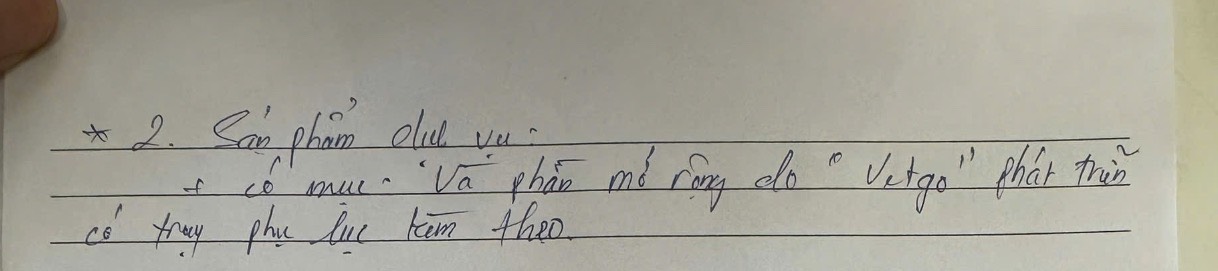 * 2. Sản phẩm dịch vụ:
+ có mục: "Và phần mở rộng do "Vetgo" phát triển
có trong phụ lục kèm theo.